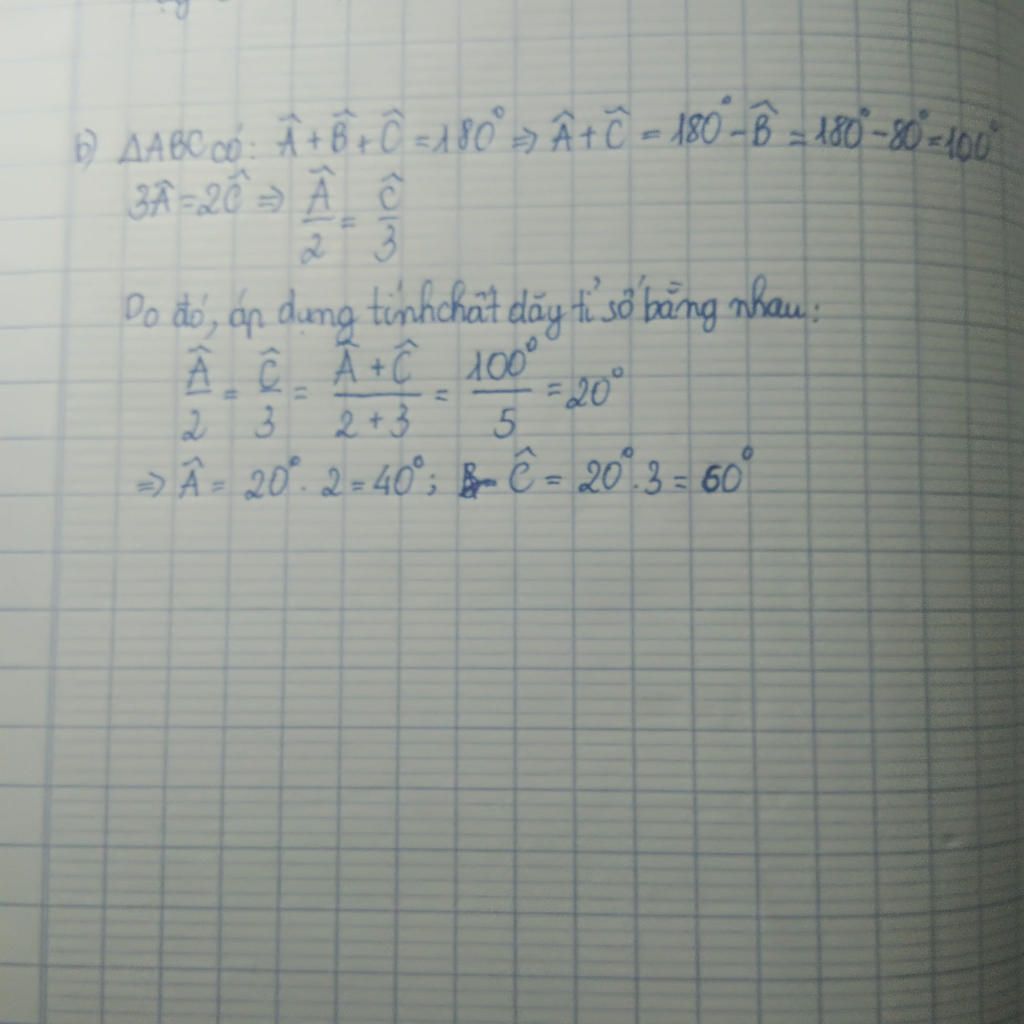 b) ΔABC có: Â + B̂ + Ĉ = 180° ⇒ Â + Ĉ = 180° - B̂ = 180° - 80° = 100°
3Â = 2Ĉ ⇒ Â/2 = Ĉ/3
Do đó, áp dụng tính chất dãy tỉ số bằng nhau:
Â/2 = Ĉ/3 = (Â + Ĉ)/(2 + 3) = 100°/5 = 20°
⇒ Â = 20° . 2 = 40° ; Ĉ = 20° . 3 = 60°